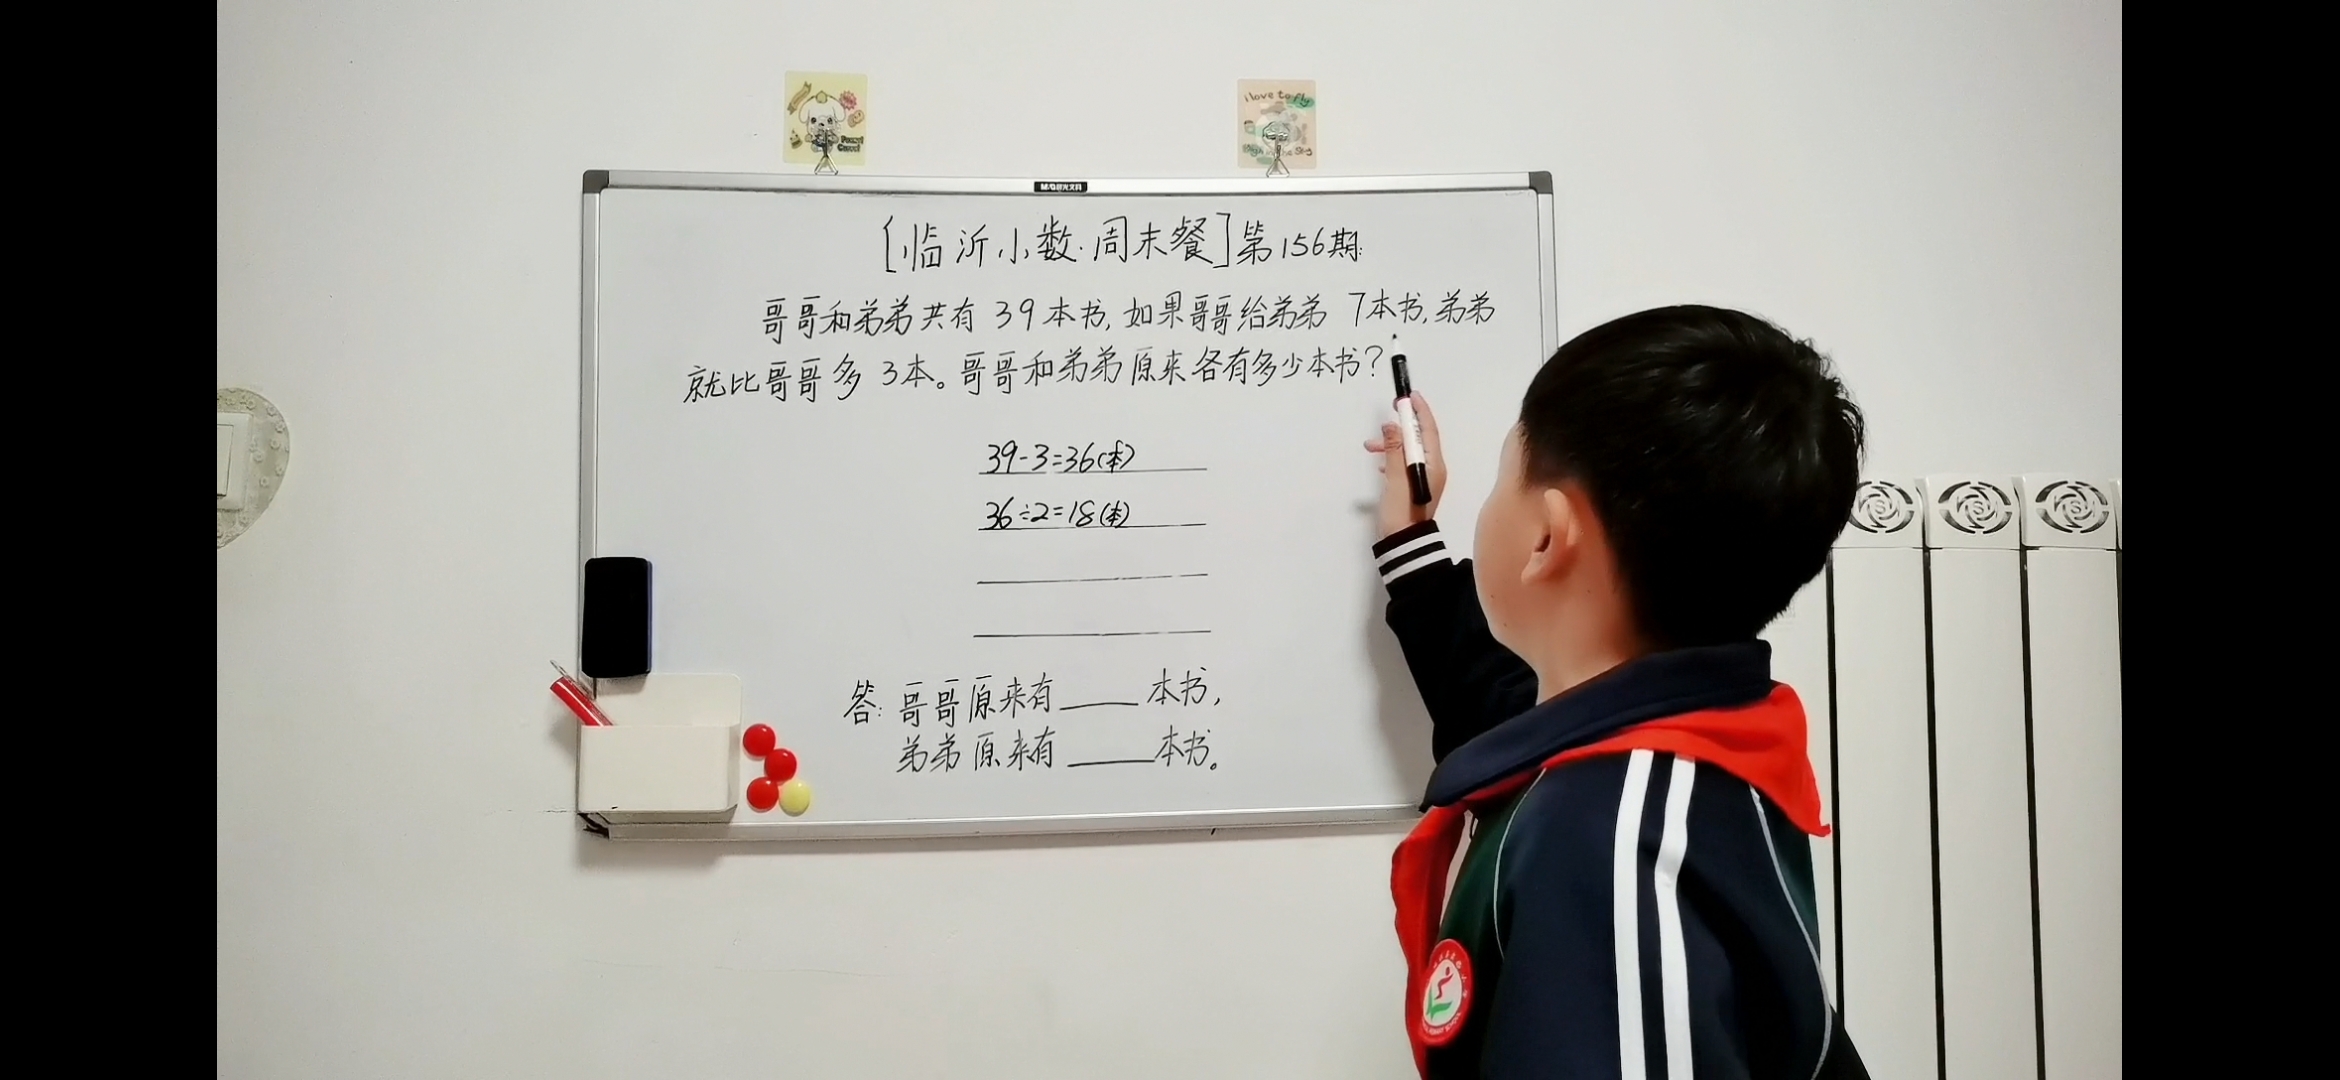 I love to fly
M&G晨光文具
[临沂小数·周末餐]第156期:
哥哥和弟弟共有39本书,如果哥哥给弟弟7本书,弟弟
就比哥哥多3本。哥哥和弟弟原来各有多少本书?
39-3=36(本)
36÷2=18(本)
答:哥哥原来有____本书,
弟弟原来有____本书。